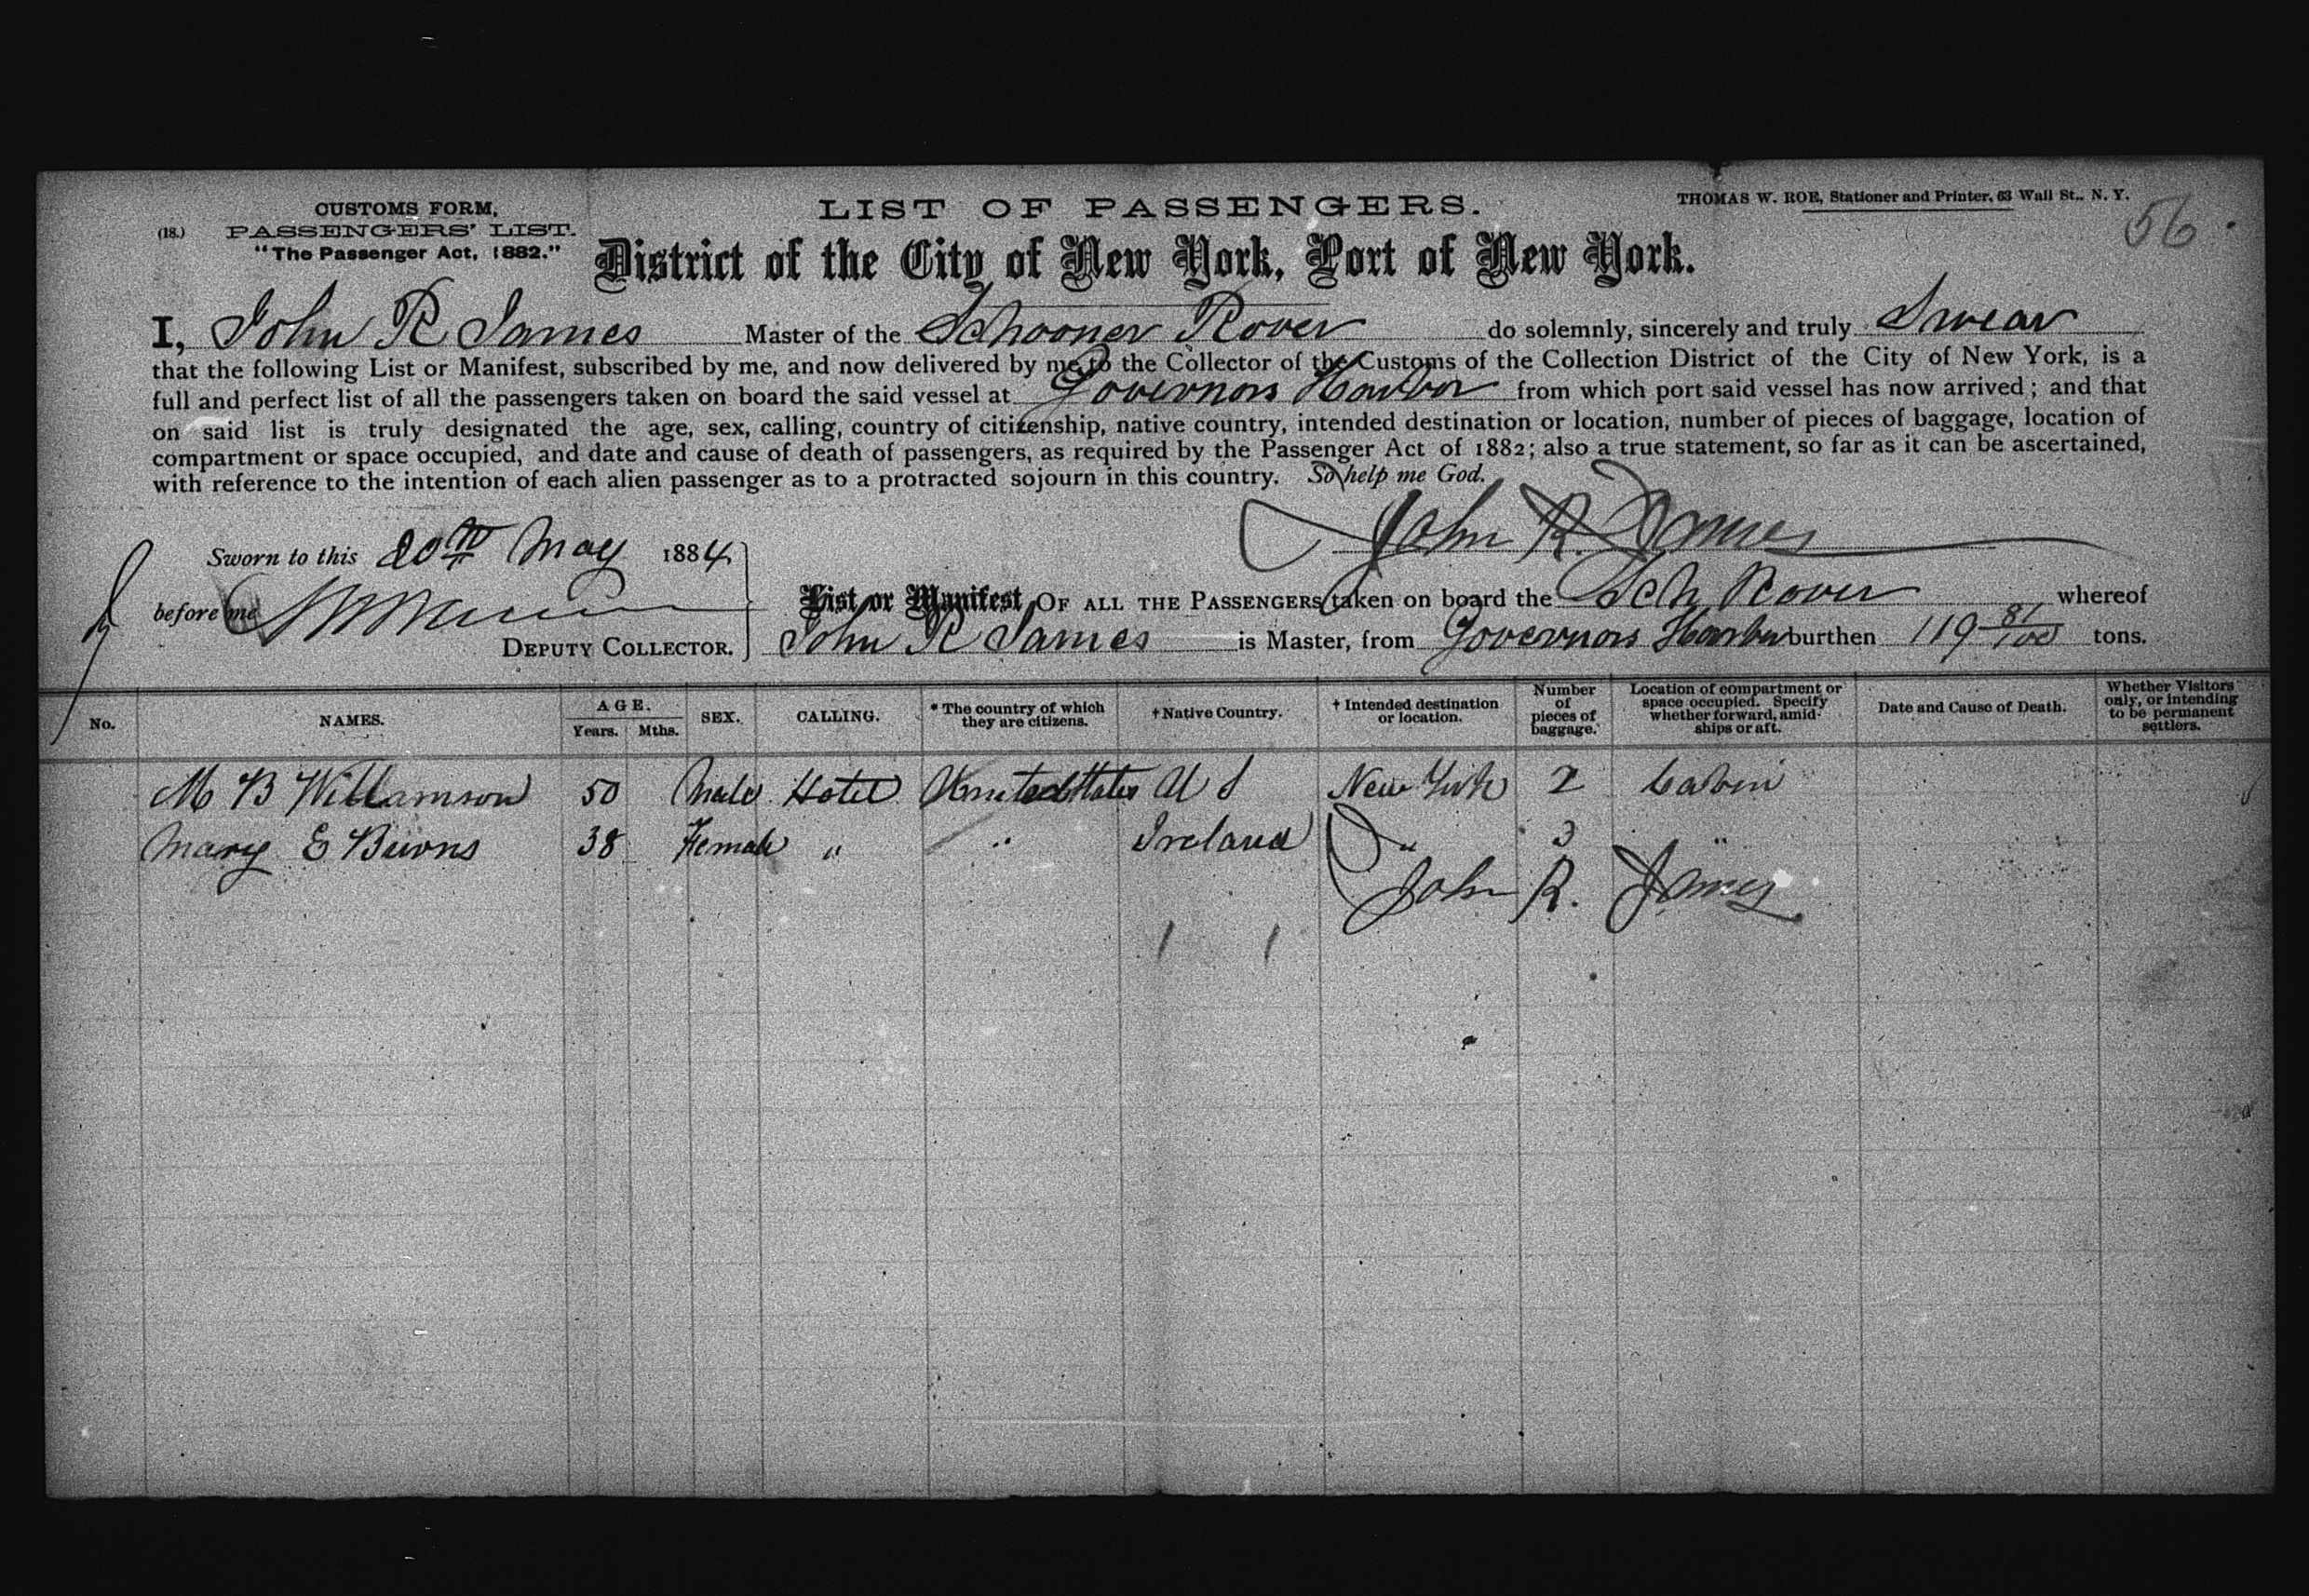 CUSTOMS FORM,
(18.) PASSENGERS' LIST.
"The Passenger Act, 1882."
LIST OF PASSENGERS.
THOMAS W. ROE, Stationer and Printer, 63 Wall St., N. Y.
56
District of the City of New York, Port of New York.
I, John R James Master of the Schooner Rover do solemnly, sincerely and truly Swear
that the following List or Manifest, subscribed by me, and now delivered by me to the Collector of the Customs of the Collection District of the City of New York, is a
full and perfect list of all the passengers taken on board the said vessel at Governors Harbor from which port said vessel has now arrived; and that
on said list is truly designated the age, sex, calling, country of citizenship, native country, intended destination or location, number of pieces of baggage, location of
compartment or space occupied, and date and cause of death of passengers, as required by the Passenger Act of 1882; also a true statement, so far as it can be ascertained,
with reference to the intention of each alien passenger as to a protracted sojourn in this country. So help me God.
John R. James
Sworn to this 20th May 1884
before me
DEPUTY COLLECTOR.
List or Manifest OF ALL THE PASSENGERS taken on board the Sch Rover whereof
John R James is Master, from Governors Harbor burthen 119 81/100 tons.
No. NAMES. AGE. Years. Mths. SEX. CALLING. * The country of which they are citizens. † Native Country. † Intended destination or location. Number of pieces of baggage. Location of compartment or space occupied. Specify whether forward, amidships or aft. Date and Cause of Death. Whether Visitors only, or intending to be permanent settlers.
M B Williamson 50 Male Hotel United States U S New York 2 Cabin
Mary E Burns 38 Female " " Ireland " 3 "
John R. James
1 1